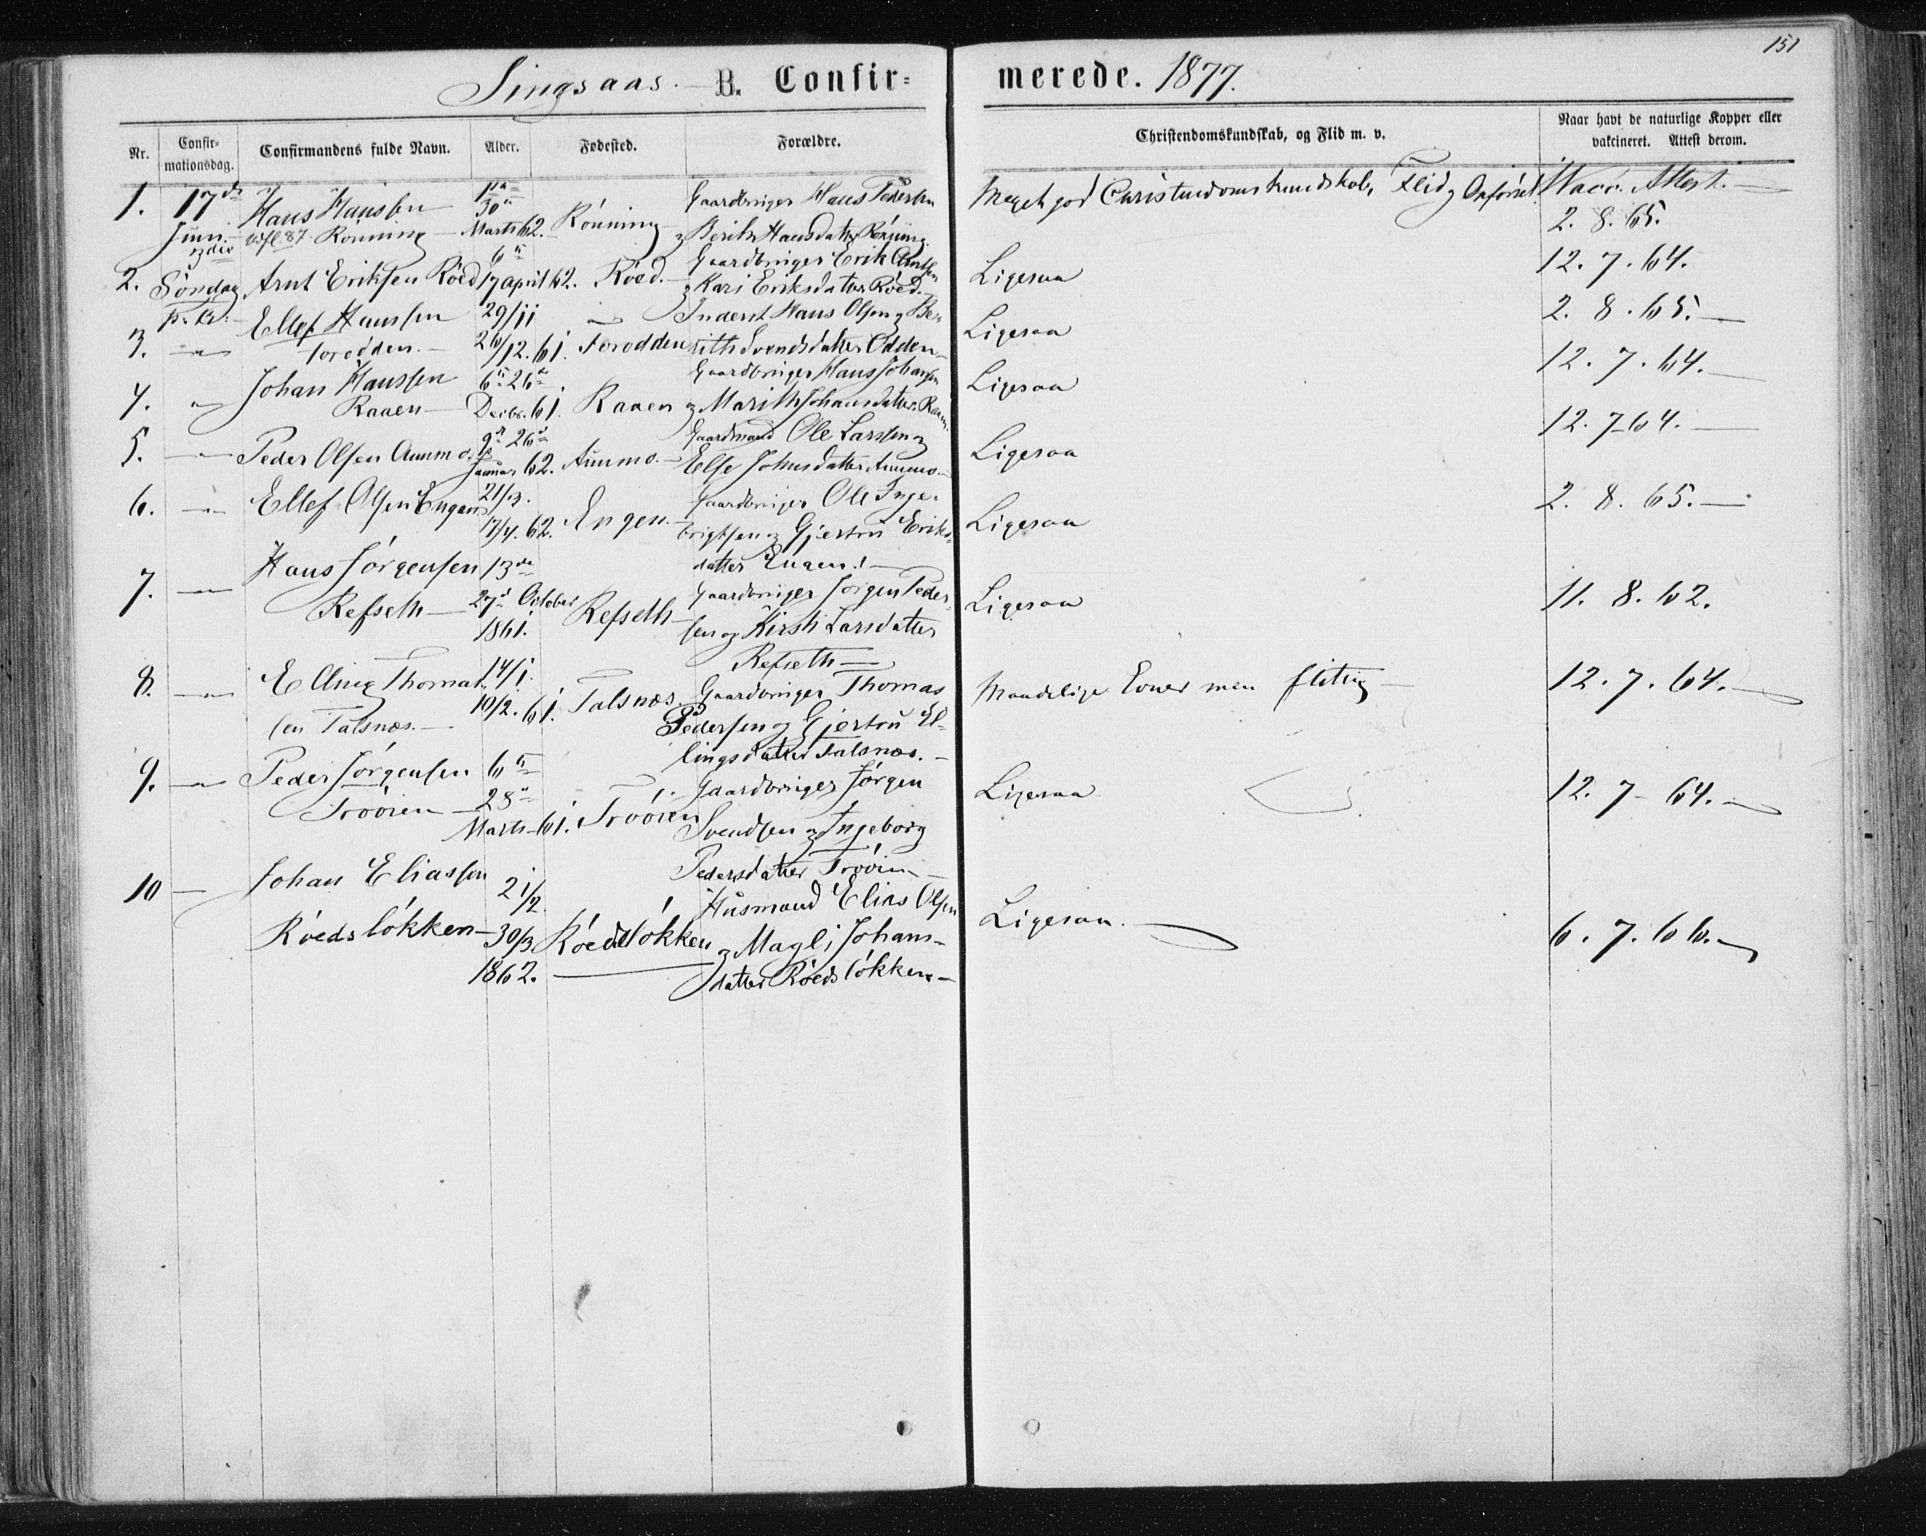 151
Singsaas. B. Confirmerede. 1877.
Nr. Confirmationsdag. Confirmandens fulde Navn. Alder. Fødested. Forældre. Christendomskundskab, og Flid m. v. Naar havt de naturlige Kopper eller vakcineret. Attest derom.
1. 17de Hans Hanssen 30te Gaardbruger Hans Pedersen Meget god Christendomskundskab, Flid og Opførsel. Vacc. Attest.
Juni Rønning Marts 62. Rønning og Berith Hansdatter Rønning. 2. 8. 65.
2. Søndag Arnt Eriksen Röed 17 April 62. Röed. Gaardbruger Erik Arntsen Ligesaa 12. 7. 64.
og Kari Eriksdatter Röed.
3. Ellef Hanssen 29/11 Inderst Hans Olsen og Be- Ligesaa 2. 8. 65.
Forodden 26/12. 61. Forodden rith Svendsdatter Odden
4. Johan Hanssen 6te 26de Gaardbruger Hans Johansen Ligesaa 12. 7. 64.
Raaen Decbr. 61. Raaen og Marith Johansdatter Raaen
5. Peder Olsen Aunmo 9de 26de Gaardmand Ole Larssen og Ligesaa 12. 7. 64.
Januar 62. Aunmo. Else Johnsdatter Aunmo.
6. Ellef Olsen Engen 21/3. Gaardbruger Ole Inge- Ligesaa 2. 8. 65.
17/4. 62. Engen. brigtsen og Gjertru Eriks-
datter Engen.
7. Hans Jørgensen 13de Gaardbruger Jørgen Peder- Ligesaa 11. 8. 62.
Refseth 27de October Refseth sen og Kirsti Larsdatter
1861. Refseth
8. Elling Thomas- 14/1. Gaardbruger Thomas Maadelige Evner men flittig 12. 7. 64.
sen Talsnæs. 10/2. 61. Talsnæs. Pedersen og Gjertru El-
lingsdatter Talsnæs.
9. Peder Jørgensen 6te Gaardbruger Jørgen Ligesaa 12. 7. 64.
Trøøien 28de Trøøien Svendsen og Ingeborg
Marts 61. Pedersdatter Trøøien
10 Johan Eliassen 21/2 Husmand Elias Olsen Ligesaa. 6. 7. 66.
Röedsløkken 30/3 Röedsløkken og Magli Johans-
1862. datter Röedsløkken